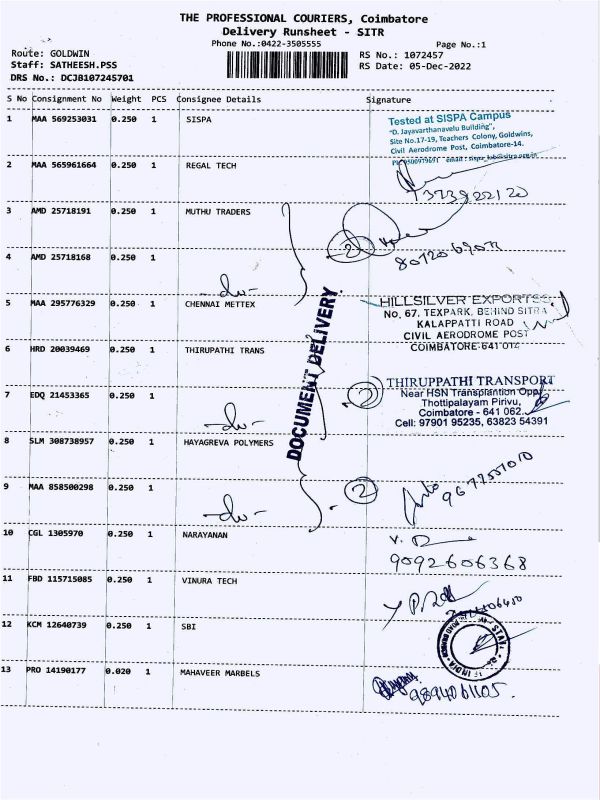 THE PROFESSIONAL COURIERS, Coimbatore
Delivery Runsheet - SITR
Phone No.:0422-3505555 Page No.:1
Route: GOLDWIN RS No.: 1072457
Staff: SATHEESH.PSS RS Date: 05-Dec-2022
DRS No.: DCJB107245701
S No Consignment No Weight PCS Consignee Details Signature
1 MAA 569253031 0.250 1 SISPA
Tested at SISPA Campus
"D. Jayavarthanavelu Building",
Site No.17-19, Teachers Colony, Goldwins,
Civil Aerodrome Post, Coimbatore-14.
2 MAA 565961664 0.250 1 REGAL TECH
3 AMD 25718191 0.250 1 MUTHU TRADERS
2
4 AMD 25718168 0.250 1 -do-
DOCUMENT DELIVERY
5 MAA 295776329 0.250 1 CHENNAI METTEX
HILLSILVER EXPORTSS
No, 67, TEXPARK, BEHIND SITRA
KALAPPATTI ROAD
CIVIL AERODROME POST
COIMBATORE-641 014
6 HRD 20039469 0.250 1 THIRUPATHI TRANS
THIRUPPATHI TRANSPORT
Near HSN Transplantion Opp,
Thottipalayam Pirivu,
Coimbatore - 641 062.
Cell: 97901 95235, 63823 54391
7 EDQ 21453365 0.250 1 -do- 2
8 SLM 308738957 0.250 1 HAYAGREVA POLYMERS
9 MAA 858500298 0.250 1 -do- 2
10 CGL 1305970 0.250 1 NARAYANAN
9092606368
11 FBD 115715085 0.250 1 VINURA TECH
12 KCM 12640739 0.250 1 SBI
13 PRO 14190177 0.020 1 MAHAVEER MARBELS
9894061105.